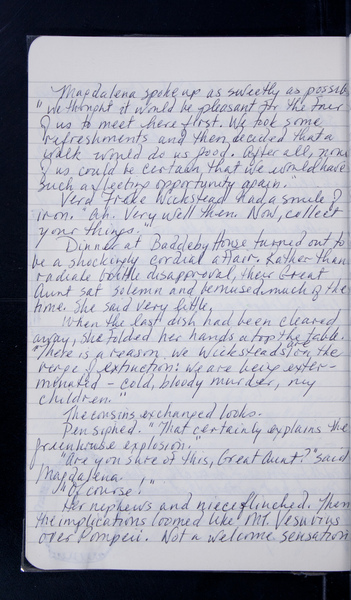 Magdalena spoke up as sweetly as possible.
"We thought it would be pleasant for the four
of us to meet here first. We took some
refreshments and then decided that a
walk would do us good. After all, none
of us could be certain that we would have
such a fleeting opportunity again."
Vera Frake Wickstead had a smile of
iron. "Ah. Very well then. Now, collect
your things."
Dinner at Baddeby House turned out to
be a shockingly cordial affair. Rather than
radiate bottle disapproval, their Great
Aunt sat solemn and bemused much of the
time. She said very little.
When the last dish had been cleared
away, she folded her hands atop the table.
"There is a reason we Wicksteads are on the
verge of extinction: we are being exter-
minated - cold, bloody murder, my
children."
The cousins exchanged looks.
Pen siphed. "That certainly explains the
greenhouse explosion."
"Are you shre of this, Great Aunt?" said
Magdalena.
"Of course!"
Her nephews and niece flinched. Then
the implications loomed like Mt. Vesuvius
over Pompeii. Not a welcome sensation